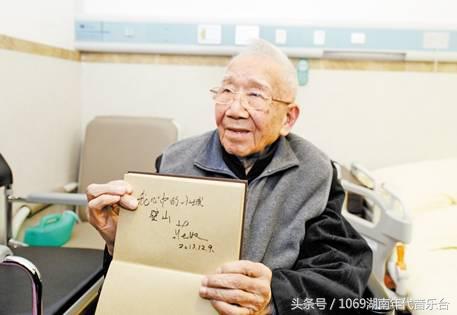 我心中的小城
璧山
2013.12.9.
头条号 / 1069湖南年代音乐台